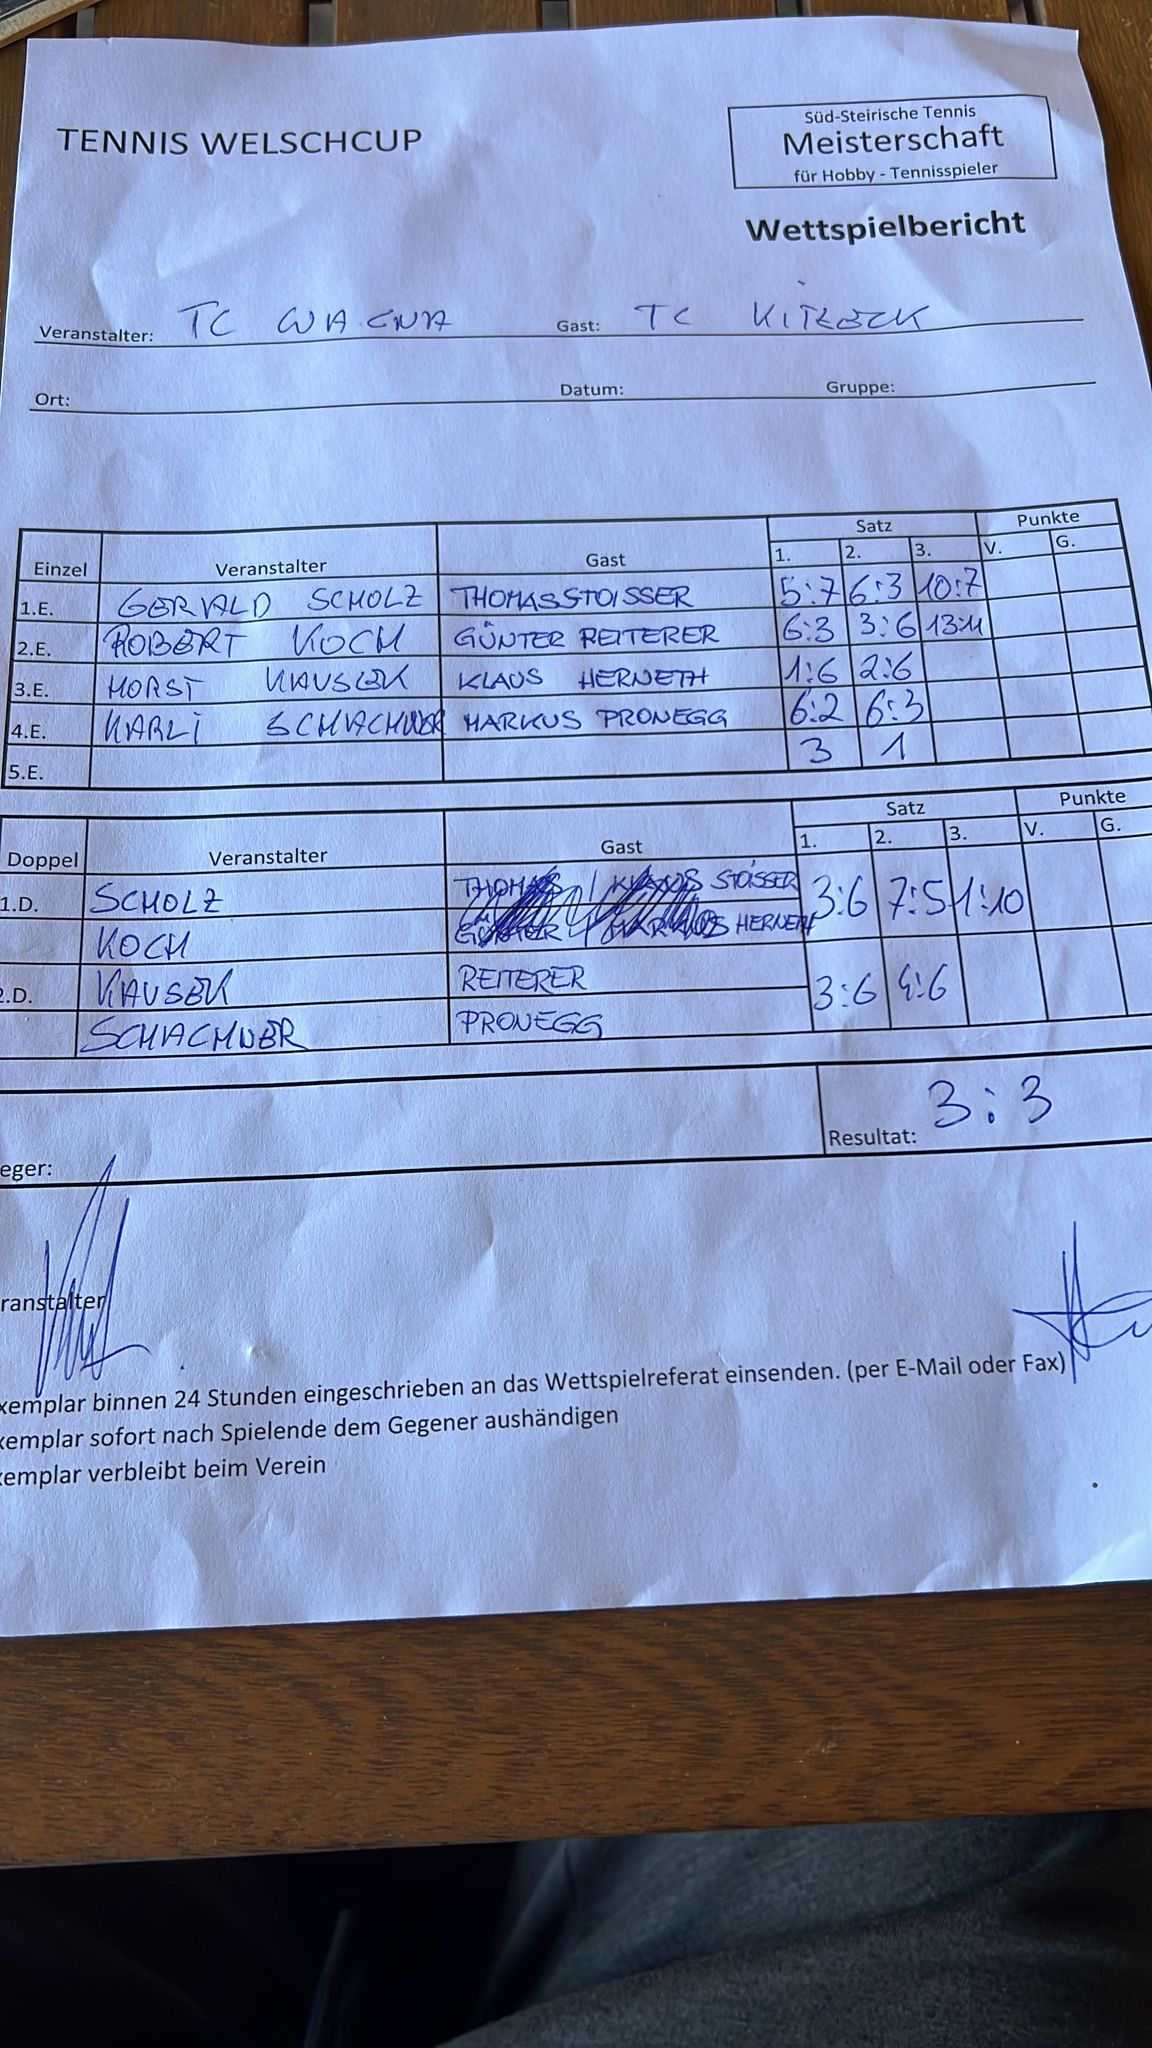 TENNIS WELSCHCUP
Süd-Steirische Tennis
Meisterschaft
für Hobby - Tennisspieler
Wettspielbericht
Veranstalter: TC WAGNA Gast: TC KITZECK
Ort: Datum: Gruppe:
Einzel Veranstalter Gast Satz Punkte
1. 2. 3. V. G.
1.E. GERVALD SCHOLZ THOMAS STOISSER 5:7 6:3 10:7
2.E. ROBERT KOCH GÜNTER REITERER 6:3 3:6 13:11
3.E. HORST KAUSEK KLAUS HERNETH 1:6 2:6
4.E. KARLI SCHACHNER MARKUS PRONEGG 6:2 6:3
5.E. 3 1
Doppel Veranstalter Gast Satz Punkte
1. 2. 3. V. G.
1.D. SCHOLZ THOMAS / KLAUS STOISSER 3:6 7:5 1:10
KOCH GÜNTER / MARKUS HERNETH
2.D. KAUSEK REITERER 3:6 4:6
SCHACHNER PRONEGG
Resultat: 3:3
eger:
ranstalter
xemplar binnen 24 Stunden eingeschrieben an das Wettspielreferat einsenden. (per E-Mail oder Fax)
xemplar sofort nach Spielende dem Gegener aushändigen
xemplar verbleibt beim Verein